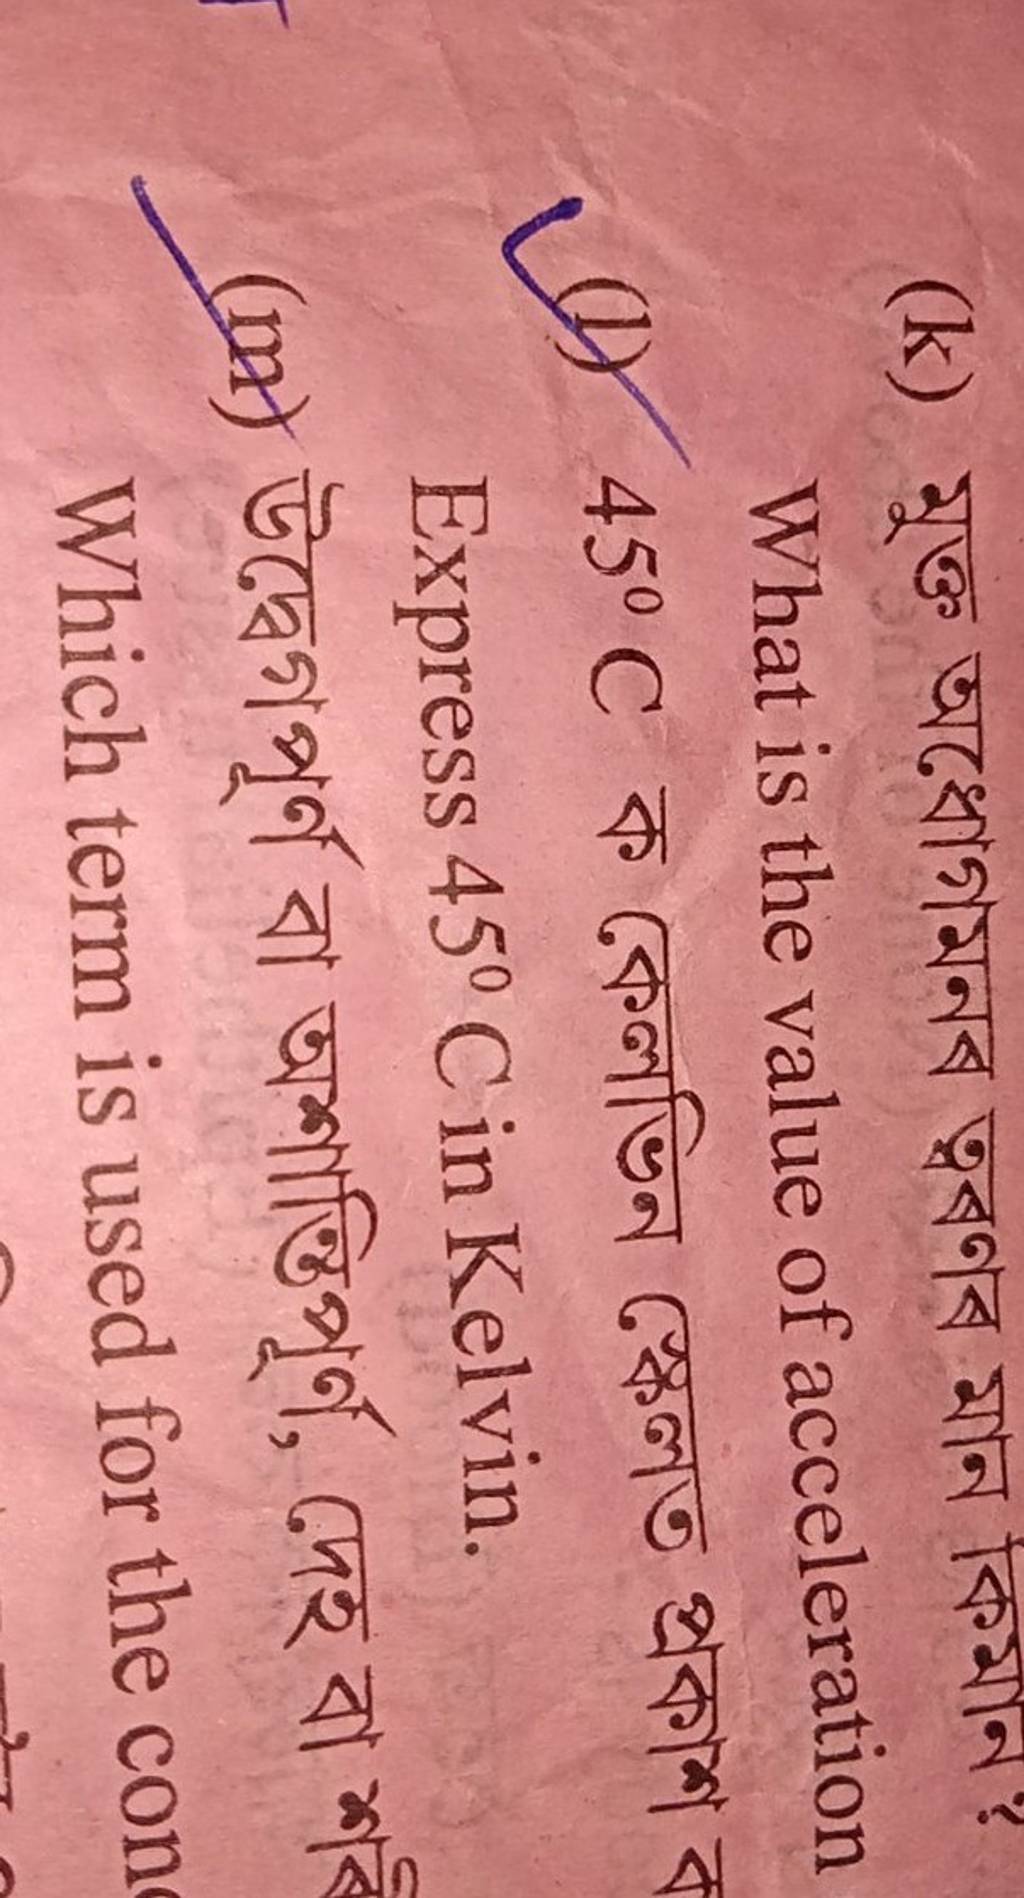 (k) মুক্ত অধোগমনৰ ত্বৰণৰ মান কিমান?
What is the value of acceleration
(l) 45⁰ C ক কেলভিন স্কেলত প্ৰকাশ ক
Express 45⁰ C in Kelvin.
(m) উদ্বেগপূৰ্ণ বা অশান্তিপূৰ্ণ, দেহ বা শৰি
Which term is used for the con